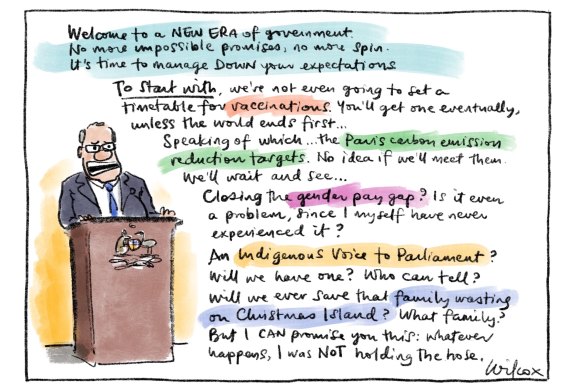 Welcome to a NEW ERA of government.
No more impossible promises, no more spin.
It's time to manage DOWN your expectations
To start with, we're not even going to set a
timetable for vaccinations. You'll get one eventually,
unless the world ends first...
Speaking of which... the Paris carbon emission
reduction targets. No idea if we'll meet them.
We'll wait and see...
Closing the gender pay gap? Is it even
a problem, since I myself have never
experienced it?
An Indigenous Voice to Parliament?
Will we have one? Who can tell?
Will we ever save that family wasting
on Christmas Island? What family?
But I CAN promise you this: whatever
happens, I was NOT holding the hose.
Wilcox